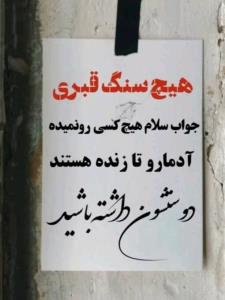 هیچ سنگ قبری
جواب سلام هیچ کسی رو نمیده
آدمارو تا زنده هستند
دوستشون داشته باشید